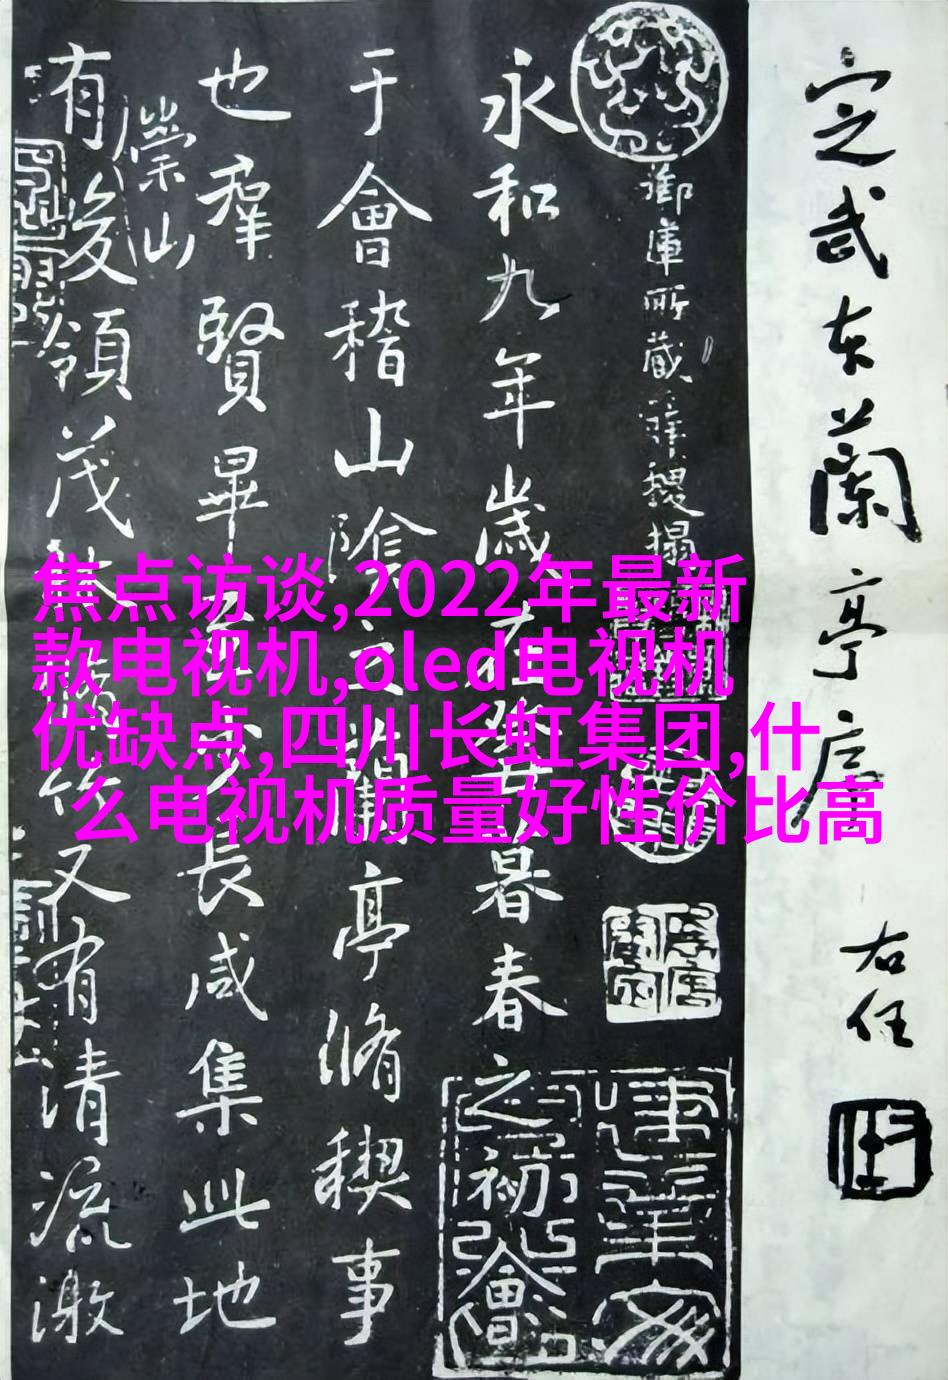 定武本蘭亭序
右任
御庫所藏薛稷搨
永和九年歲在癸丑暮春之初會
于會稽山陰之蘭亭脩稧事
也羣賢畢至少長咸集此地
崇山
有峻領茂林脩竹又有清流激
焦点访谈,2022年最新
款电视机,oled电视机
优缺点,四川长虹集团,什
么电视机质量好性价比高